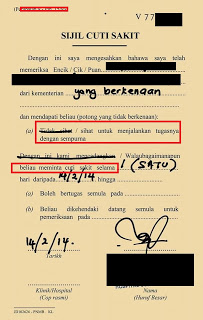 V 77
SIJIL CUTI SAKIT
Dengan ini saya mengesahkan bahawa saya telah
memeriksa Encik / Cik / Puan
dari kementerian yang berkenaan
dan mendapati beliau (potong yang tidak berkenaan):
(a) Tidak sihat / sihat untuk menjalankan tugasnya
dengan sempurna
Dengan ini kami / Walaubagaimanapun
beliau meminta cuti sakit selama 1 (SATU)
hari daripada 14/2/14 hingga
(a) Boleh bertugas semula pada
(b) Beliau dikehendaki datang semula untuk
pemeriksaan pada
14/2/14.
Tarikh
Klinik/Hospital
(Cop rasmi)
Nama
(Huruf Besar)